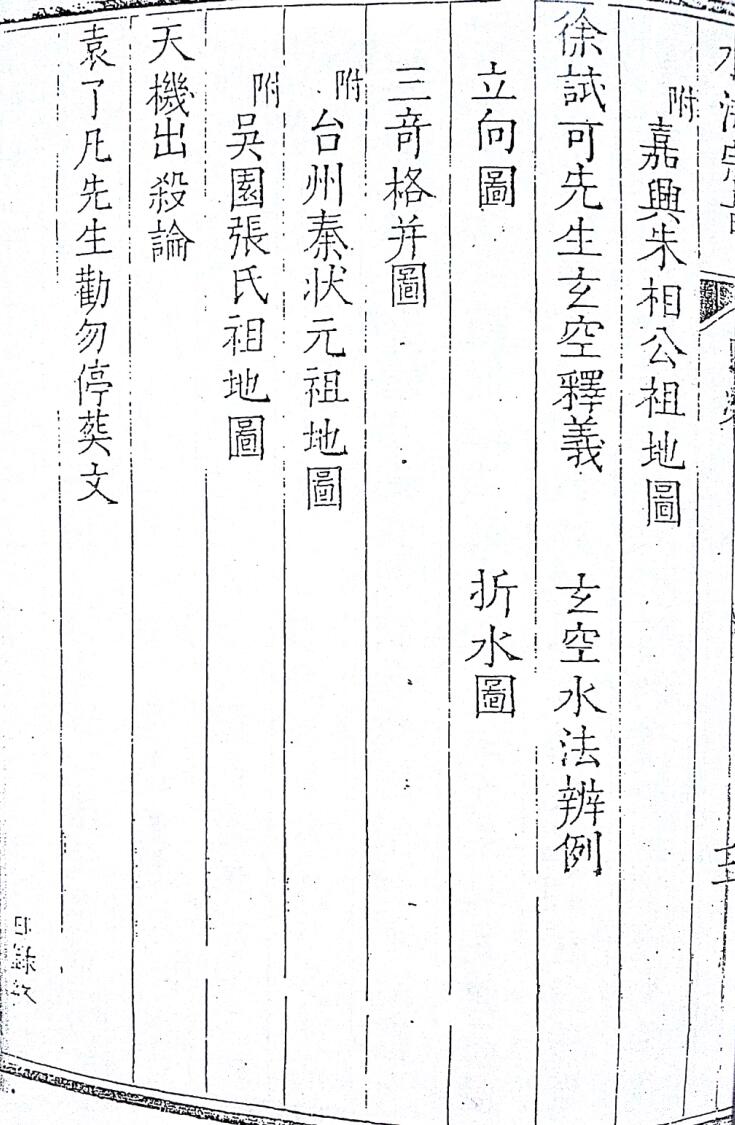 附嘉興朱相公祖地圖
徐試可先生玄空釋義　玄空水法辨例
立向圖　折水圖
三奇格并圖
附台州秦狀元祖地圖
附吳園張氏祖地圖
天機出殺論
袁了凡先生勸勿停葬文
目錄終